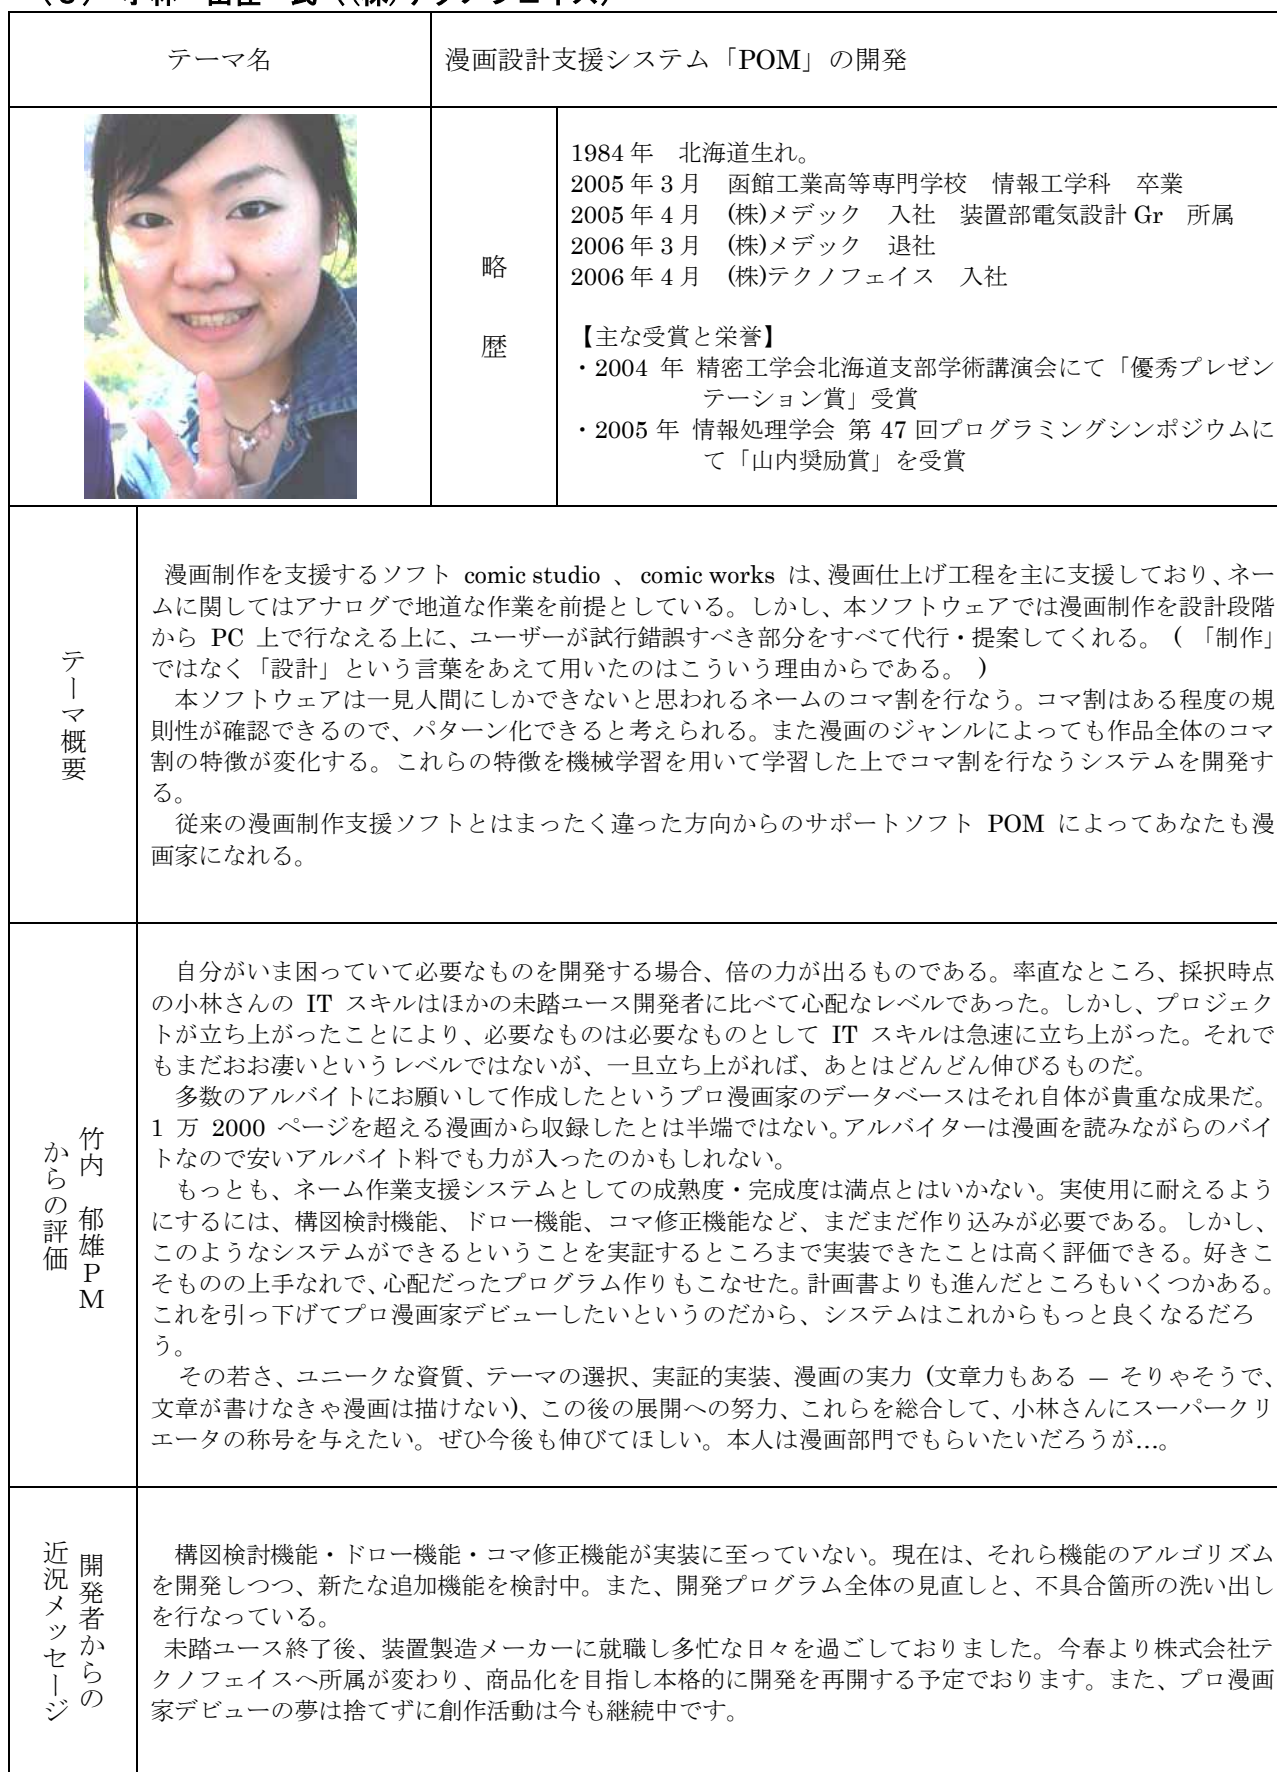 テーマ名
漫画設計支援システム「POM」の開発
略歴
1984 年　北海道生れ。
2005 年 3 月　函館工業高等専門学校　情報工学科　卒業
2005 年 4 月　(株)メデック　入社　装置部電気設計 Gr　所属
2006 年 3 月　(株)メデック　退社
2006 年 4 月　(株)テクノフェイス　入社
【主な受賞と栄誉】
・2004 年 精密工学会北海道支部学術講演会にて「優秀プレゼン
テーション賞」受賞
・2005 年 情報処理学会 第 47 回プログラミングシンポジウムに
て「山内奨励賞」を受賞
テーマ概要
漫画制作を支援するソフト comic studio 、 comic works は、漫画仕上げ工程を主に支援しており、ネー
ムに関してはアナログで地道な作業を前提としている。しかし、本ソフトウェアでは漫画制作を設計段階
から PC 上で行なえる上に、ユーザーが試行錯誤すべき部分をすべて代行・提案してくれる。 ( 「制作」
ではなく「設計」という言葉をあえて用いたのはこういう理由からである。 )
本ソフトウェアは一見人間にしかできないと思われるネームのコマ割を行なう。コマ割はある程度の規
則性が確認できるので、パターン化できると考えられる。また漫画のジャンルによっても作品全体のコマ
割の特徴が変化する。これらの特徴を機械学習を用いて学習した上でコマ割を行なうシステムを開発す
る。
従来の漫画制作支援ソフトとはまったく違った方向からのサポートソフト POM によってあなたも漫
画家になれる。
竹内　郁雄ＰＭ
からの評価
自分がいま困っていて必要なものを開発する場合、倍の力が出るものである。率直なところ、採択時点
の小林さんの IT スキルはほかの未踏ユース開発者に比べて心配なレベルであった。しかし、プロジェク
トが立ち上がったことにより、必要なものは必要なものとして IT スキルは急速に立ち上がった。それで
もまだおお凄いというレベルではないが、一旦立ち上がれば、あとはどんどん伸びるものだ。
多数のアルバイトにお願いして作成したというプロ漫画家のデータベースはそれ自体が貴重な成果だ。
1 万 2000 ページを超える漫画から収録したとは半端ではない。アルバイターは漫画を読みながらのバイ
トなので安いアルバイト料でも力が入ったのかもしれない。
もっとも、ネーム作業支援システムとしての成熟度・完成度は満点とはいかない。実使用に耐えるよう
にするには、構図検討機能、ドロー機能、コマ修正機能など、まだまだ作り込みが必要である。しかし、
このようなシステムができるということを実証するところまで実装できたことは高く評価できる。好きこ
そものの上手なれで、心配だったプログラム作りもこなせた。計画書よりも進んだところもいくつかある。
これを引っ下げてプロ漫画家デビューしたいというのだから、システムはこれからもっと良くなるだろ
う。
その若さ、ユニークな資質、テーマの選択、実証的実装、漫画の実力 (文章力もある － そりゃそうで、
文章が書けなきゃ漫画は描けない)、この後の展開への努力、これらを総合して、小林さんにスーパークリ
エータの称号を与えたい。ぜひ今後も伸びてほしい。本人は漫画部門でもらいたいだろうが…。
開発者からの
近況メッセージ
構図検討機能・ドロー機能・コマ修正機能が実装に至っていない。現在は、それら機能のアルゴリズム
を開発しつつ、新たな追加機能を検討中。また、開発プログラム全体の見直しと、不具合箇所の洗い出し
を行なっている。
未踏ユース終了後、装置製造メーカーに就職し多忙な日々を過ごしておりました。今春より株式会社テ
クノフェイスへ所属が変わり、商品化を目指し本格的に開発を再開する予定でおります。また、プロ漫画
家デビューの夢は捨てずに創作活動は今も継続中です。